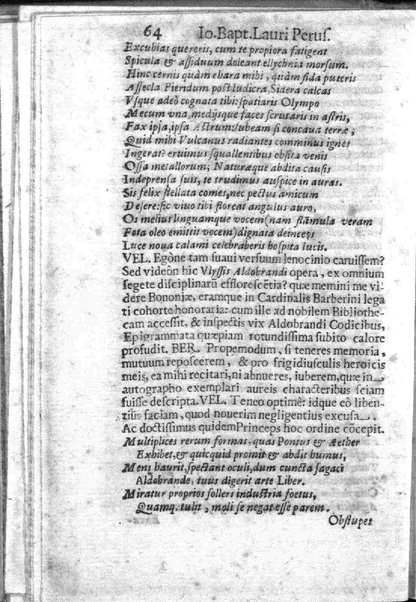 64 Io. Bapt. Lauri Perus.
Excubias quereris, cum te propiora fatigent
Spicula, & assiduum doleant ellychnia morsum.
Hinc cernis quàm chara mihi, quàm fida puteris
Assecla Pieridum post ludicra, Sidera calcas
Vsque adeò cognata tibi: spatiaris Olympo
Mecum vna, medijsque faces scrutaris in astris,
Fax ipsa, ipsa Astrum: subeam si concaua terræ,
Quid mihi Vulcanus radiantes comminus ignes
Ingerat? eruimus squallentibus obsita venis
Ossa metallorum; Naturæque abdita causis
Indeprensa suis, te trudimus auspice in auras.
Sis felix stellata comes, nec pectus amicum
Desere: sic viuo tibi floreat anguius auro,
Os melius linguamque vocem (nam flãmula veram
Fota oleo emittis vocem) dignata deinceps
Luce noua calami celebraberis hospita lucis.
VEL. Egòne tam suaui versuum lenocinio caruissem?
Sed videòn hic Vlyssis Aldobrandi opera, ex omnium
segete disciplinarũ efflorescẽtia? quæ memini me vi
dere Bononiæ, eramque in Cardinalis Barberini lega
ti cohorte honoraria: cum ille ad nobilem Bibliothe-
cam accessit, & inspectis vix Aldobrandi Codicibus,
Epigrammata quæpiam rotundissima subito calore
profudit. BER. Propemodum, si teneres memoria,
mutuum reposcerem, & pro frigidiusculis heroicis
meis, ea mihi recitari, ni abnueres, iuberem, quæ in
autographo exemplari aureis characteribus sciam
fuisse descripta. VEL. Teneo optimè: idque eò liben-
tiùs faciam, quod nouerim negligentius excusa.
Ac doctissimus quidem Princeps hoc ordine cœpit.
Multiplices rerum formas, quas Pontus & Aether
Exhibet, & quicquid promit & abdit humus,
Mens haurit, spectant oculi, dum cuncta sagaci
Aldobrande, tuus digerit arte Liber.
Miratur proprios sollers industria foetus,
Quamq. tulit, moli se negat esse parem.
Obstupet